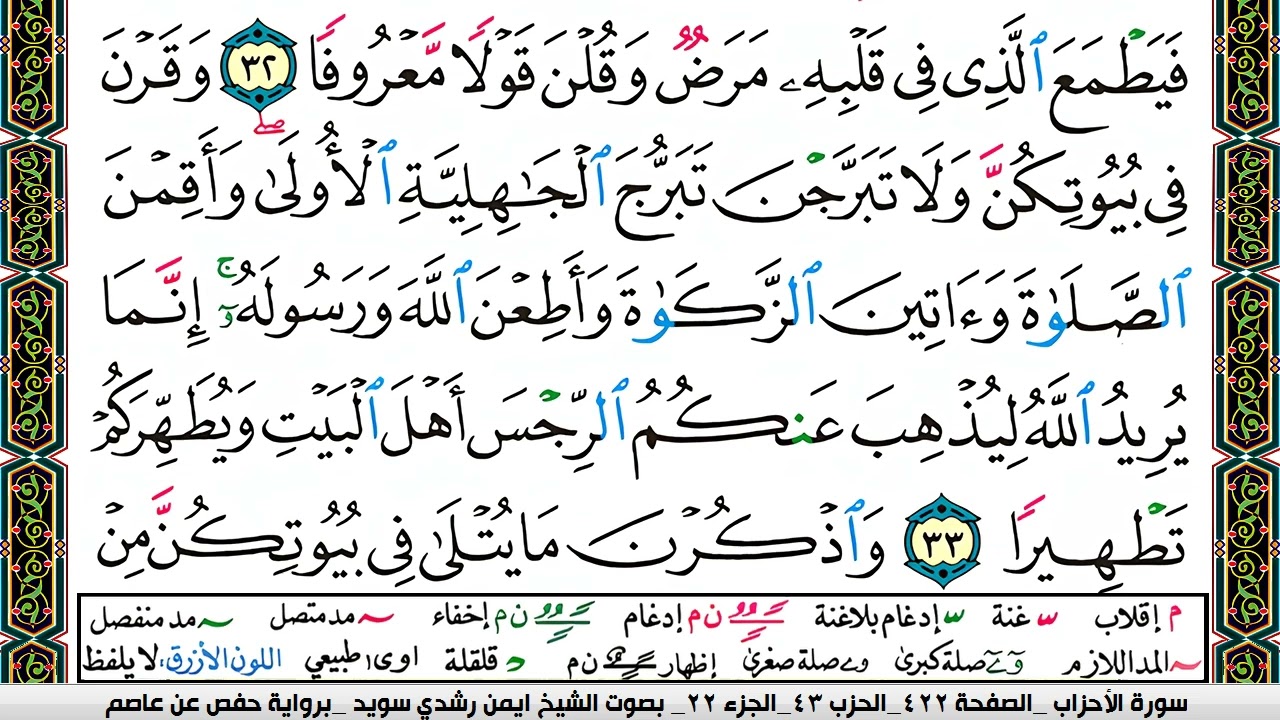 فَيَطْمَعَ ٱلَّذِى فِى قَلْبِهِۦ مَرَضٌ وَقُلْنَ قَوْلًا مَّعْرُوفًا ٣٢ وَقَرْنَ
فِى بُيُوتِكُنَّ وَلَا تَبَرَّجْنَ تَبَرُّجَ ٱلْجَـٰهِلِيَّةِ ٱلْأُولَىٰ ۖ وَأَقِمْنَ
ٱلصَّلَوٰةَ وَءَاتِينَ ٱلزَّكَوٰةَ وَأَطِعْنَ ٱللَّهَ وَرَسُولَهُۥٓ ۚ إِنَّمَا
يُرِيدُ ٱللَّهُ لِيُذْهِبَ عَنكُمُ ٱلرِّجْسَ أَهْلَ ٱلْبَيْتِ وَيُطَهِّرَكُمْ
تَطْهِيرًا ٣٣ وَٱذْكُرْنَ مَا يُتْلَىٰ فِى بُيُوتِكُنَّ مِنْ
م إقلاب س غنة س إدغام بلاغنة ن م إدغام ن م إخفاء ~ مد متصل ~ مد منفصل
~ المد اللازم وۤ ےۤ صلة كبرى و ے صلة صغرى إظهار ن م د قلقلة ا و ى طبيعي اللون الأزرق، لا يلفظ
سورة الأحزاب _الصفحة ٤٢٢_الحزب ٤٣_الجزء ٢٢_ بصوت الشيخ ايمن رشدي سويد _برواية حفص عن عاصم